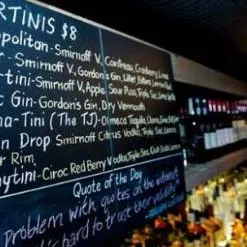 RTINIS $8
opolitan - Smirnoff V, Cointreau, Cranberry, Lime
- Smirnoff V, Gordon's Gin, Lillet, Bitters, Lemon
tini - Smirnoff V, Apple Sour Pucker, Triple Sec,
c Gin - Gordons Gin, Dry Vermouth
na-Tini (The TJ) - Olmeca Tequila, Triple Sec,
n Drop Smirnoff Citrus Vodka, Triple Sec,
r Rim
nytini - Ciroc Red Berry Vodka, Triple Sec, Club Soda, Lemon
Quote of the Day
problem with quotes on the internet
is hard to trust their validity